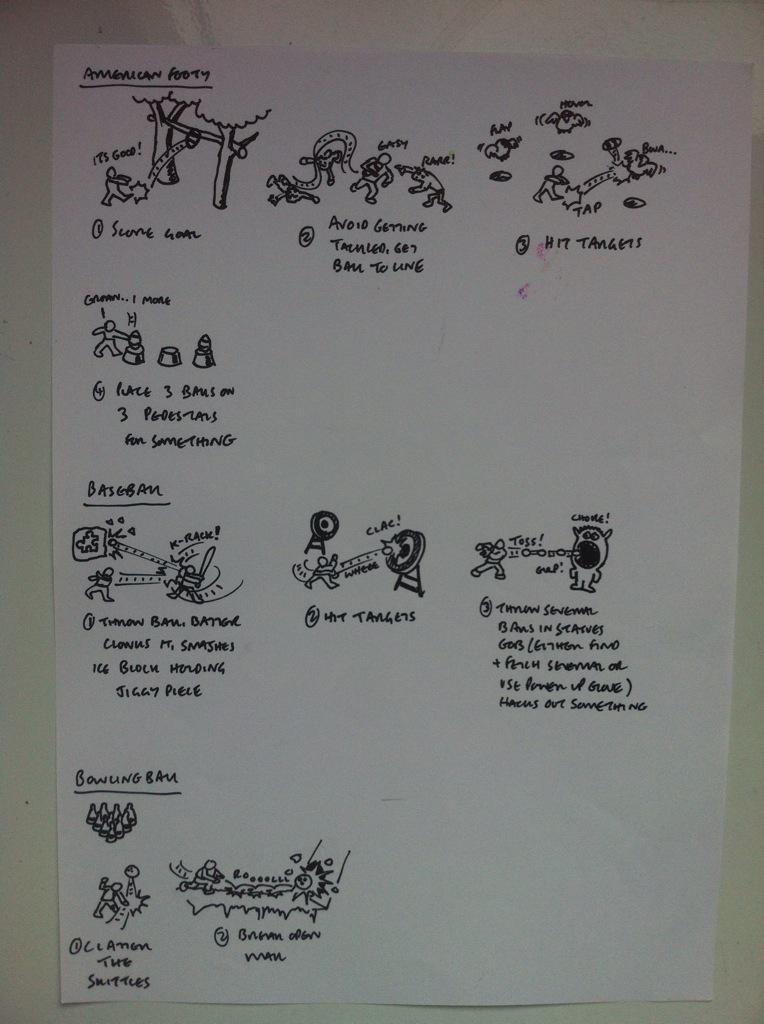 AMERICAN FOOTY
ITS GOOD!
① SCORE GOAL
EASY
RARR!
② AVOID GETTING
TACKLED, GET
BALL TO LINE
FLAP
HOVER
TAP
③ HIT TARGETS
GROAN.. 1 MORE
④ PLACE 3 BALLS ON
3 PEDESTALS
FOR SOMETHING
BASEBALL
K-RACK!
① THROW BALL. BATTER
CLONKS IT, SMASHES
ICE BLOCK HOLDING
JIGGY PIECE
CLAC!
WHEEE
② HIT TARGETS
TOSS!
CHOKE!
GULP!
③ THROW SEVERAL
BALLS IN STATUES
GOB (EITHER FIND
+ FETCH SEVERAL OR
USE POWER UP GLOVE)
HACKS OUT SOMETHING
BOWLING BALL
① CLATTER
THE
SKITTLES
ROOOOLLL
② BREAK OPEN
WALL